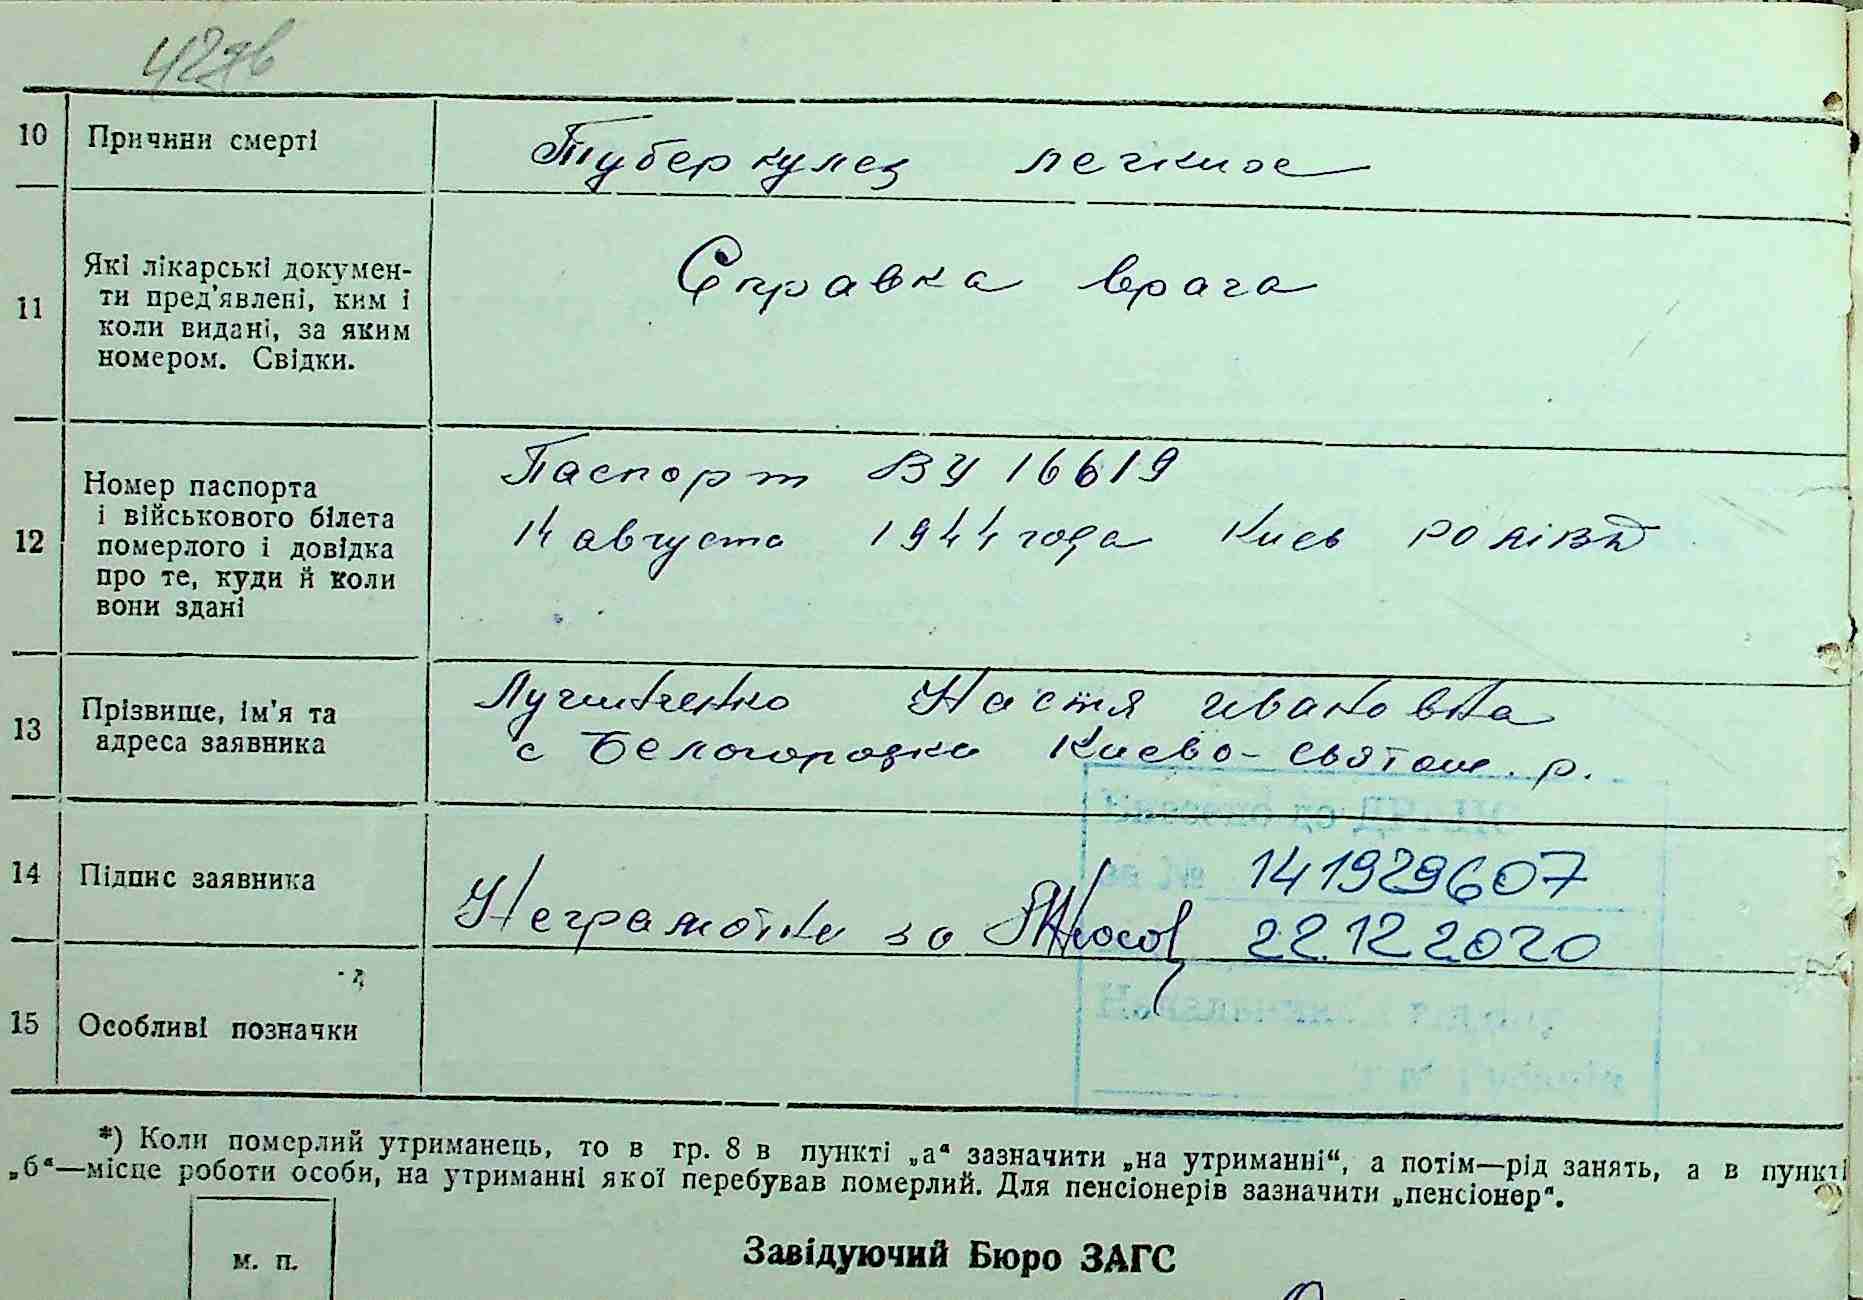 10 Причини смерті
Туберкулез легкое
11 Які лікарські докумен-
ти пред'явлені, ким і
коли видані, за яким
номером. Свідки.
Справка врача
12 Номер паспорта
і військового білета
померлого і довідка
про те, куди й коли
вони здані
Паспорт ВУ 16619
14 августа 1944 года Киев
13 Прізвище, ім'я та
адреса заявника
Настя ивановна
с Белогородка Киево-святош. р.
14 Підпис заявника
Неграмотна за
141929607
22.12.2020
15 Особливі позначки
*) Коли померлий утриманець, то в гр. 8 в пункті „а“ зазначити „на утриманні“, а потім—рід занять, а в пункті
„б“—місце роботи особи, на утриманні якої перебував померлий. Для пенсіонерів зазначити „пенсіонер“.
м. п.
Завідуючий Бюро ЗАГС